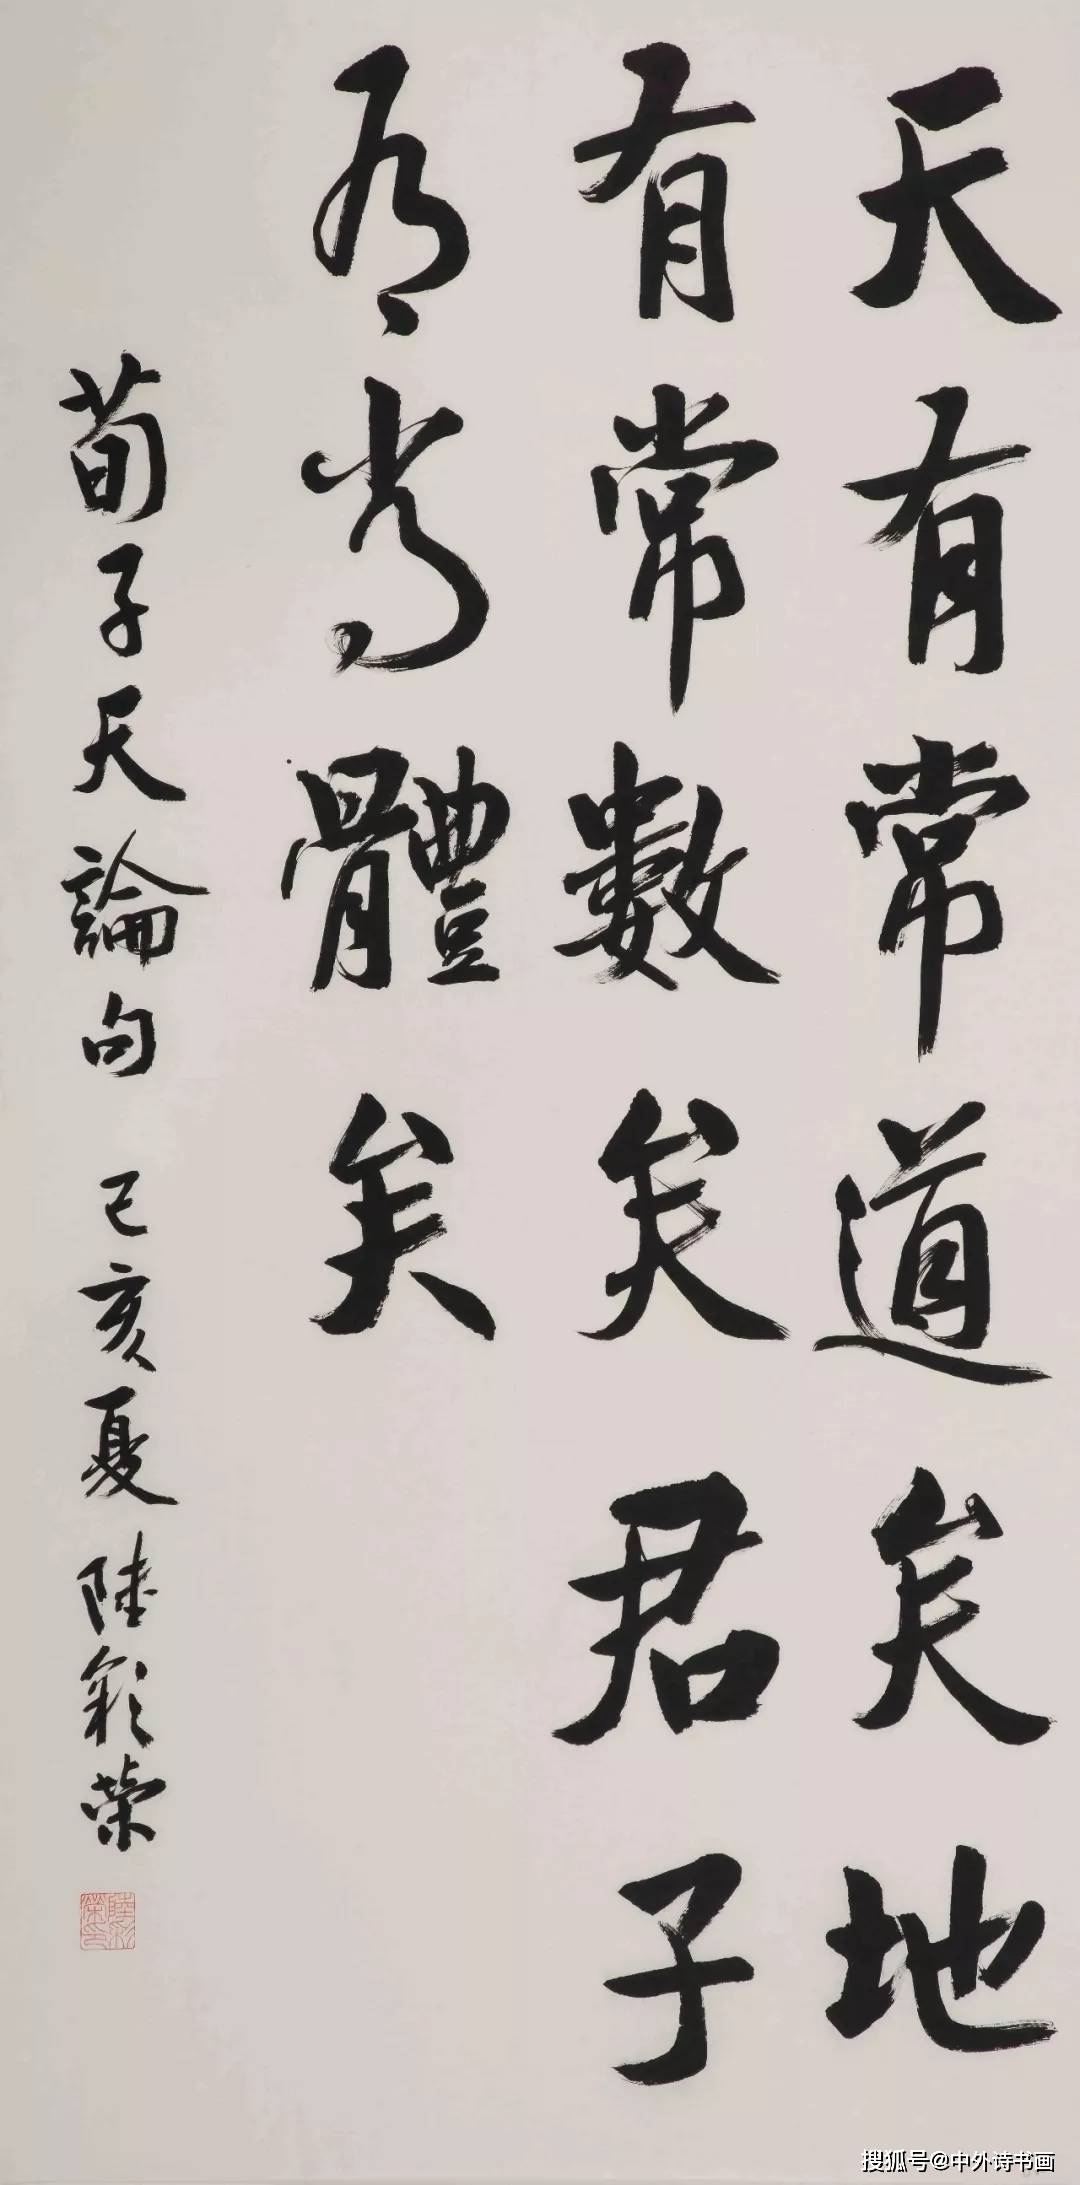 天有常道矣地
有常數矣君子
有常體矣
荀子天論句 己亥夏 陸彩榮
陸彩榮印
搜狐号@中外诗书画